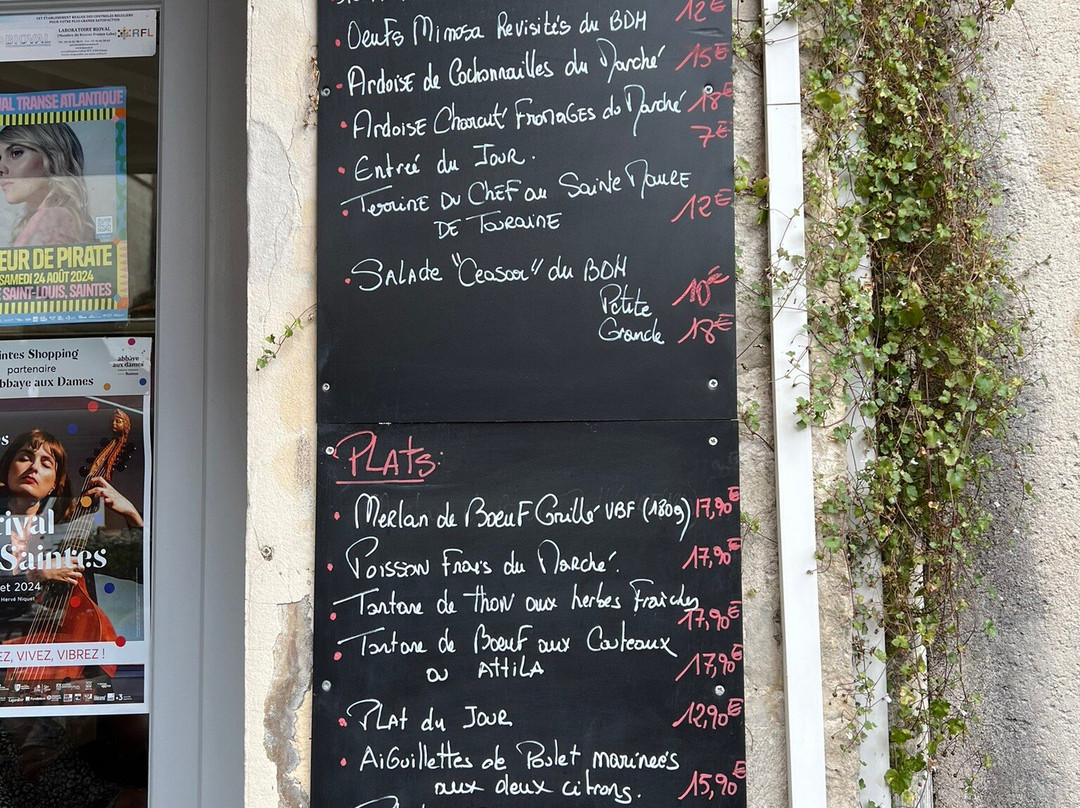 CET ÉTABLISSEMENT RÉALISE DES CONTRÔLES RÉGULIERS
POUR VOTRE PLUS GRANDE SATISFACTION
LABORATOIRE BIOVAL
BIOVAL
RFL
AL TRANSE ATLANTIQUE
EUR DE PIRATE
SAMEDI 24 AOÛT 2024
SAINT-LOUIS, SAINTES
intes Shopping
partenaire
bbaye aux Dames
abbaye
aux dames
es
rival
Saintes
et 2024
Hervé Niquet
EZ, VIVEZ, VIBREZ !
12€
• Oeufs Mimosa Revisités du BDM
15€
• Ardoise de Cochonnailles du Marché
18€
• Ardoise Charcut' Fromages du Marché
7€
• Entrée du Jour.
• Terrine du Chef au Sainte Maure
de Touraine 12€
• Salade "Ceasar" du BDM
Petite 10€
Grande 18€
Plats:
• Merlan de Boeuf Grillé VBF (180g) 17,90€
• Poisson Frais du Marché. 17,90€
• Tartare de Thon aux herbes Fraîches 17,90€
• Tartare de Boeuf aux Couteaux
ou Attila 17,90€
• Plat du Jour 12,90€
• Aiguillettes de Poulet marinées
aux deux citrons. 15,90€